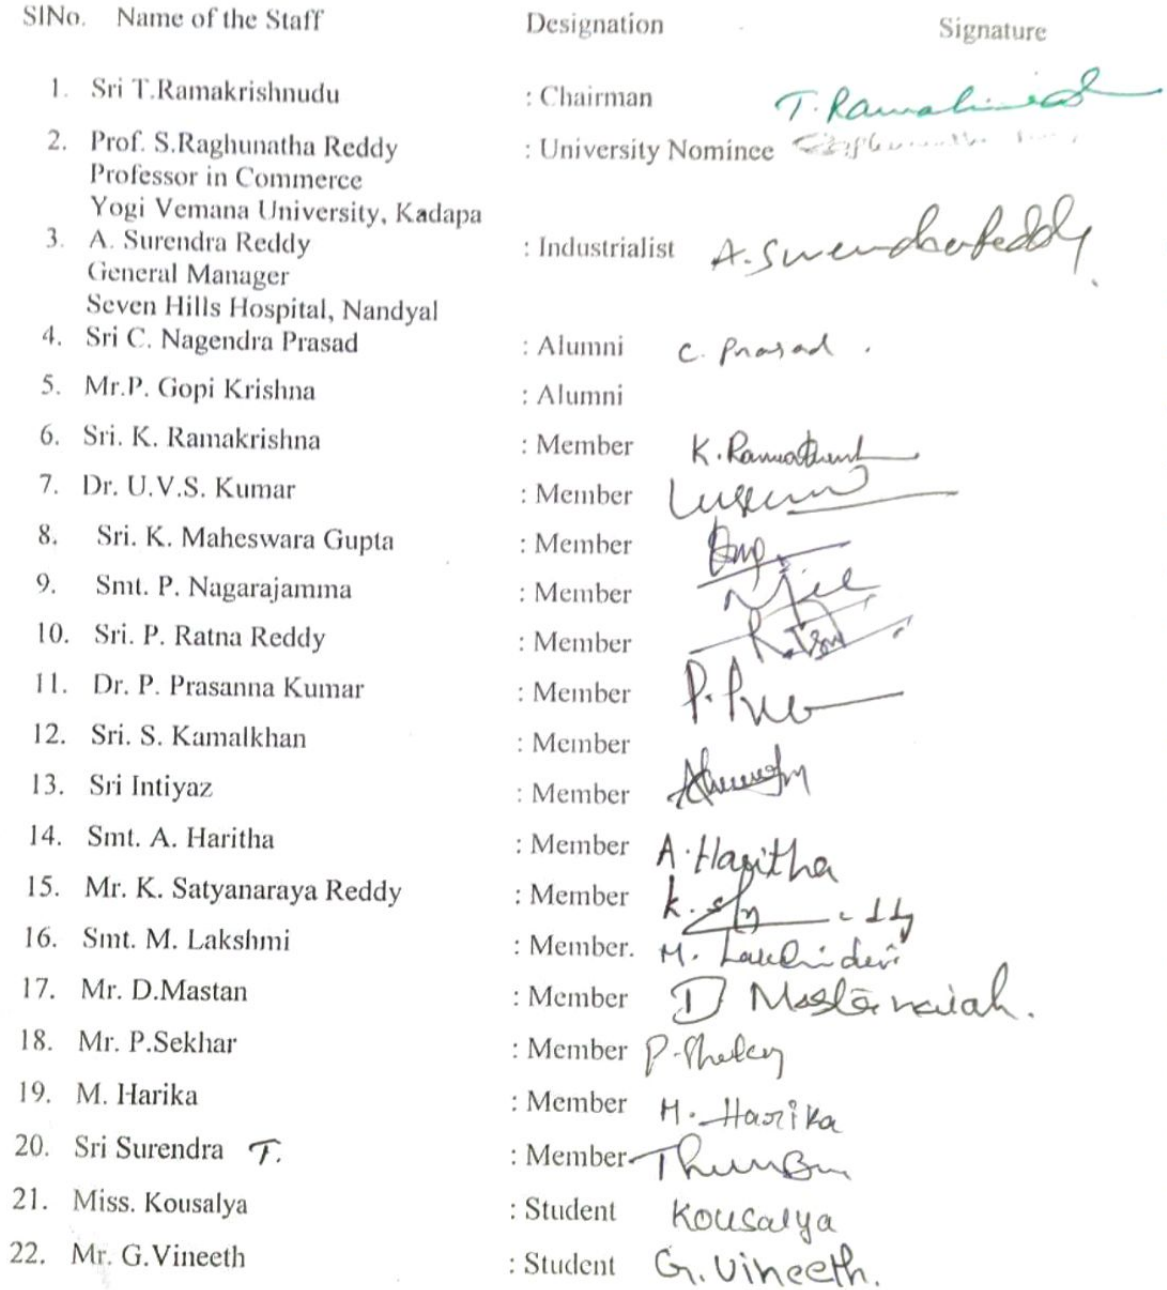 SlNo. Name of the Staff Designation Signature
1. Sri T.Ramakrishnudu : Chairman T.
2. Prof. S.Raghunatha Reddy : University Nominee
Professor in Commerce
Yogi Vemana University, Kadapa
3. A. Surendra Reddy : Industrialist A.SurendraReddy
General Manager
Seven Hills Hospital, Nandyal
4. Sri C. Nagendra Prasad : Alumni C. Prasad.
5. Mr.P. Gopi Krishna : Alumni
6. Sri. K. Ramakrishna : Member K.
7. Dr. U.V.S. Kumar : Member
8. Sri. K. Maheswara Gupta : Member
9. Smt. P. Nagarajamma : Member
10. Sri. P. Ratna Reddy : Member
11. Dr. P. Prasanna Kumar : Member P.
12. Sri. S. Kamalkhan : Member
13. Sri Intiyaz : Member
14. Smt. A. Haritha : Member A.Haritha
15. Mr. K. Satyanaraya Reddy : Member K.
16. Smt. M. Lakshmi : Member. M.
17. Mr. D.Mastan : Member D Mastanaiah.
18. Mr. P.Sekhar : Member P.
19. M. Harika : Member M. Harika
20. Sri Surendra T. : Member
21. Miss. Kousalya : Student Kousalya
22. Mr. G.Vineeth : Student G.Vineeth.